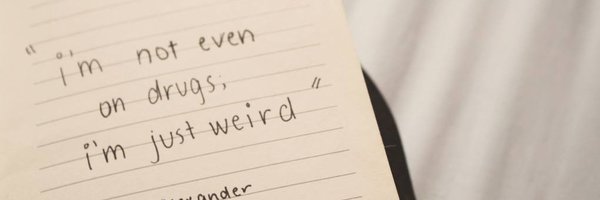 " i'm not even
on drugs;
i'm just weird "